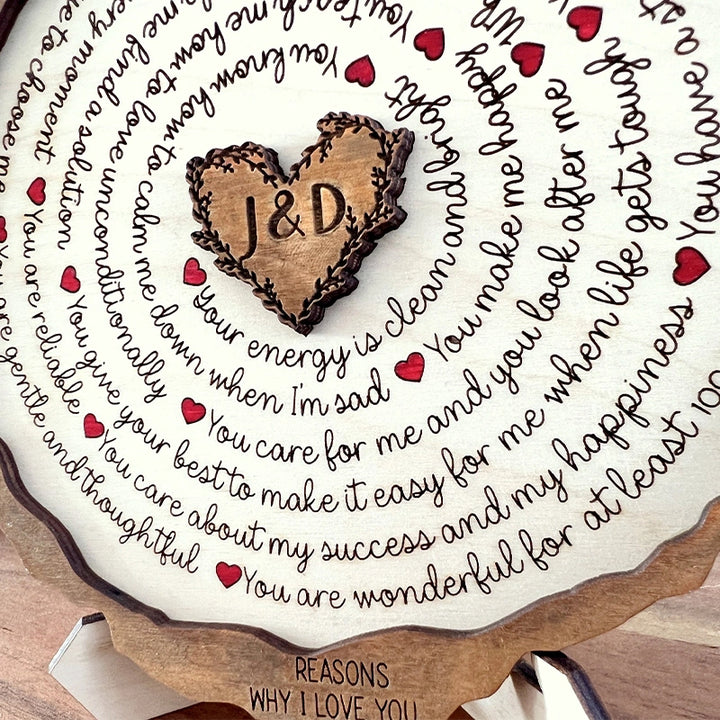 J & D
Your energy is clean and bright
You know how to calm me down when I'm sad
You make me happy
You teach me how to love unconditionally
You care for me and you look after me
find a solution
You give your best to make it easy for me when life gets tough
every moment
You are reliable
You care about my success and my happiness
You have a
to choose me
You are gentle and thoughtful
You are wonderful for at least 100
REASONS
WHY I LOVE YOU